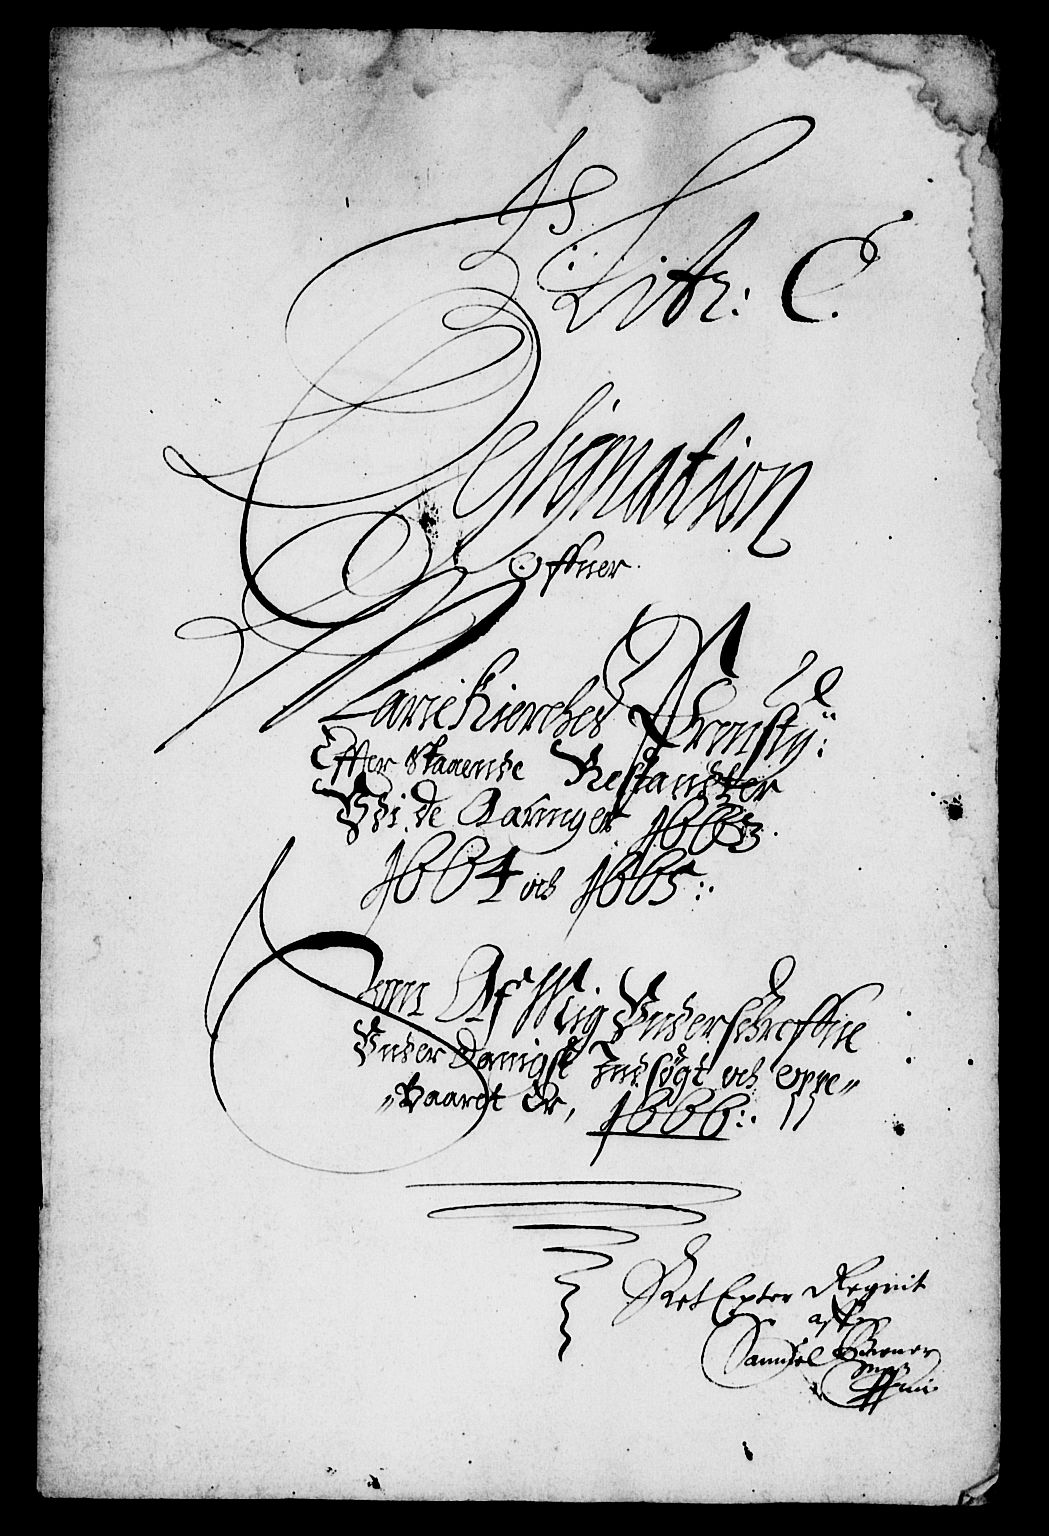 Litr: C.
Designation
Offuer
Mariekierches Prousty:
Effter staaende Restantzer
Udi de Aaringer 1663.
1664 och 1665:
Som Af Mig Underschreffne
Underdanigst Indsögt och oppe„
„baaret Er, 1666:
Ret Exter Regnit
aff
Samuel